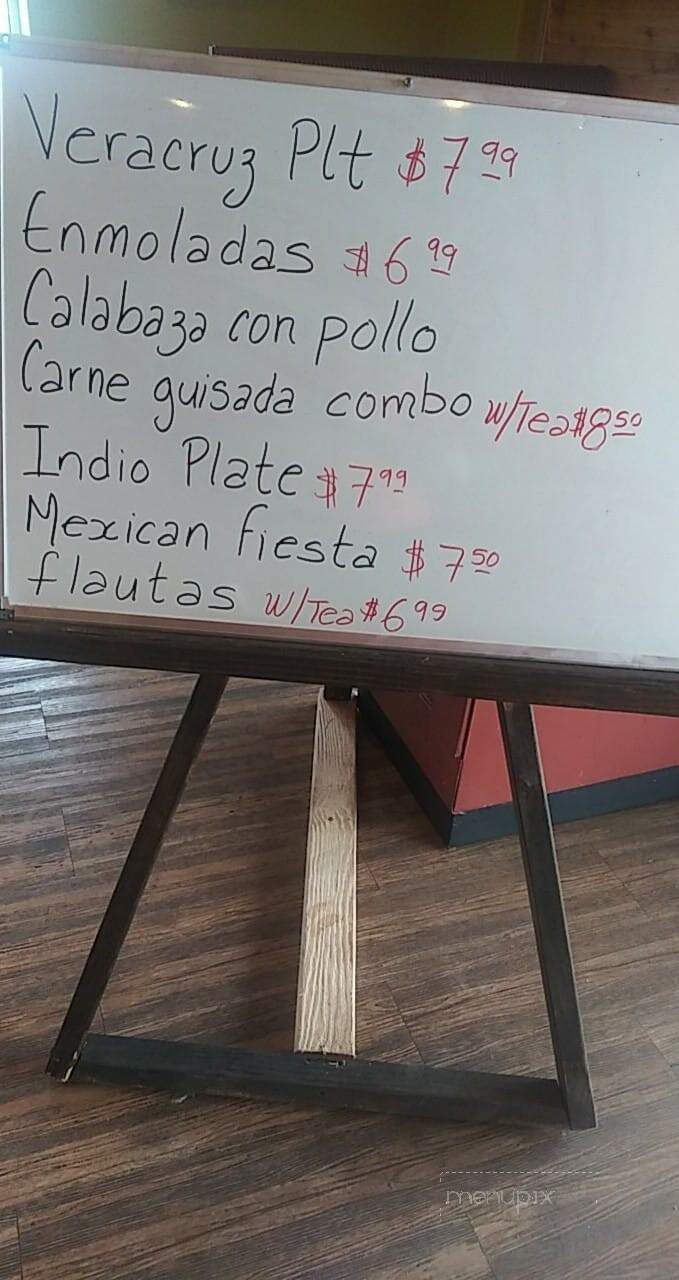 Veracruz Plt $7.99
Enmoladas $6.99
Calabaza con pollo
Carne guisada combo w/Tea $8.50
Indio Plate $7.99
Mexican fiesta $7.50
flautas w/Tea $6.99
menupix